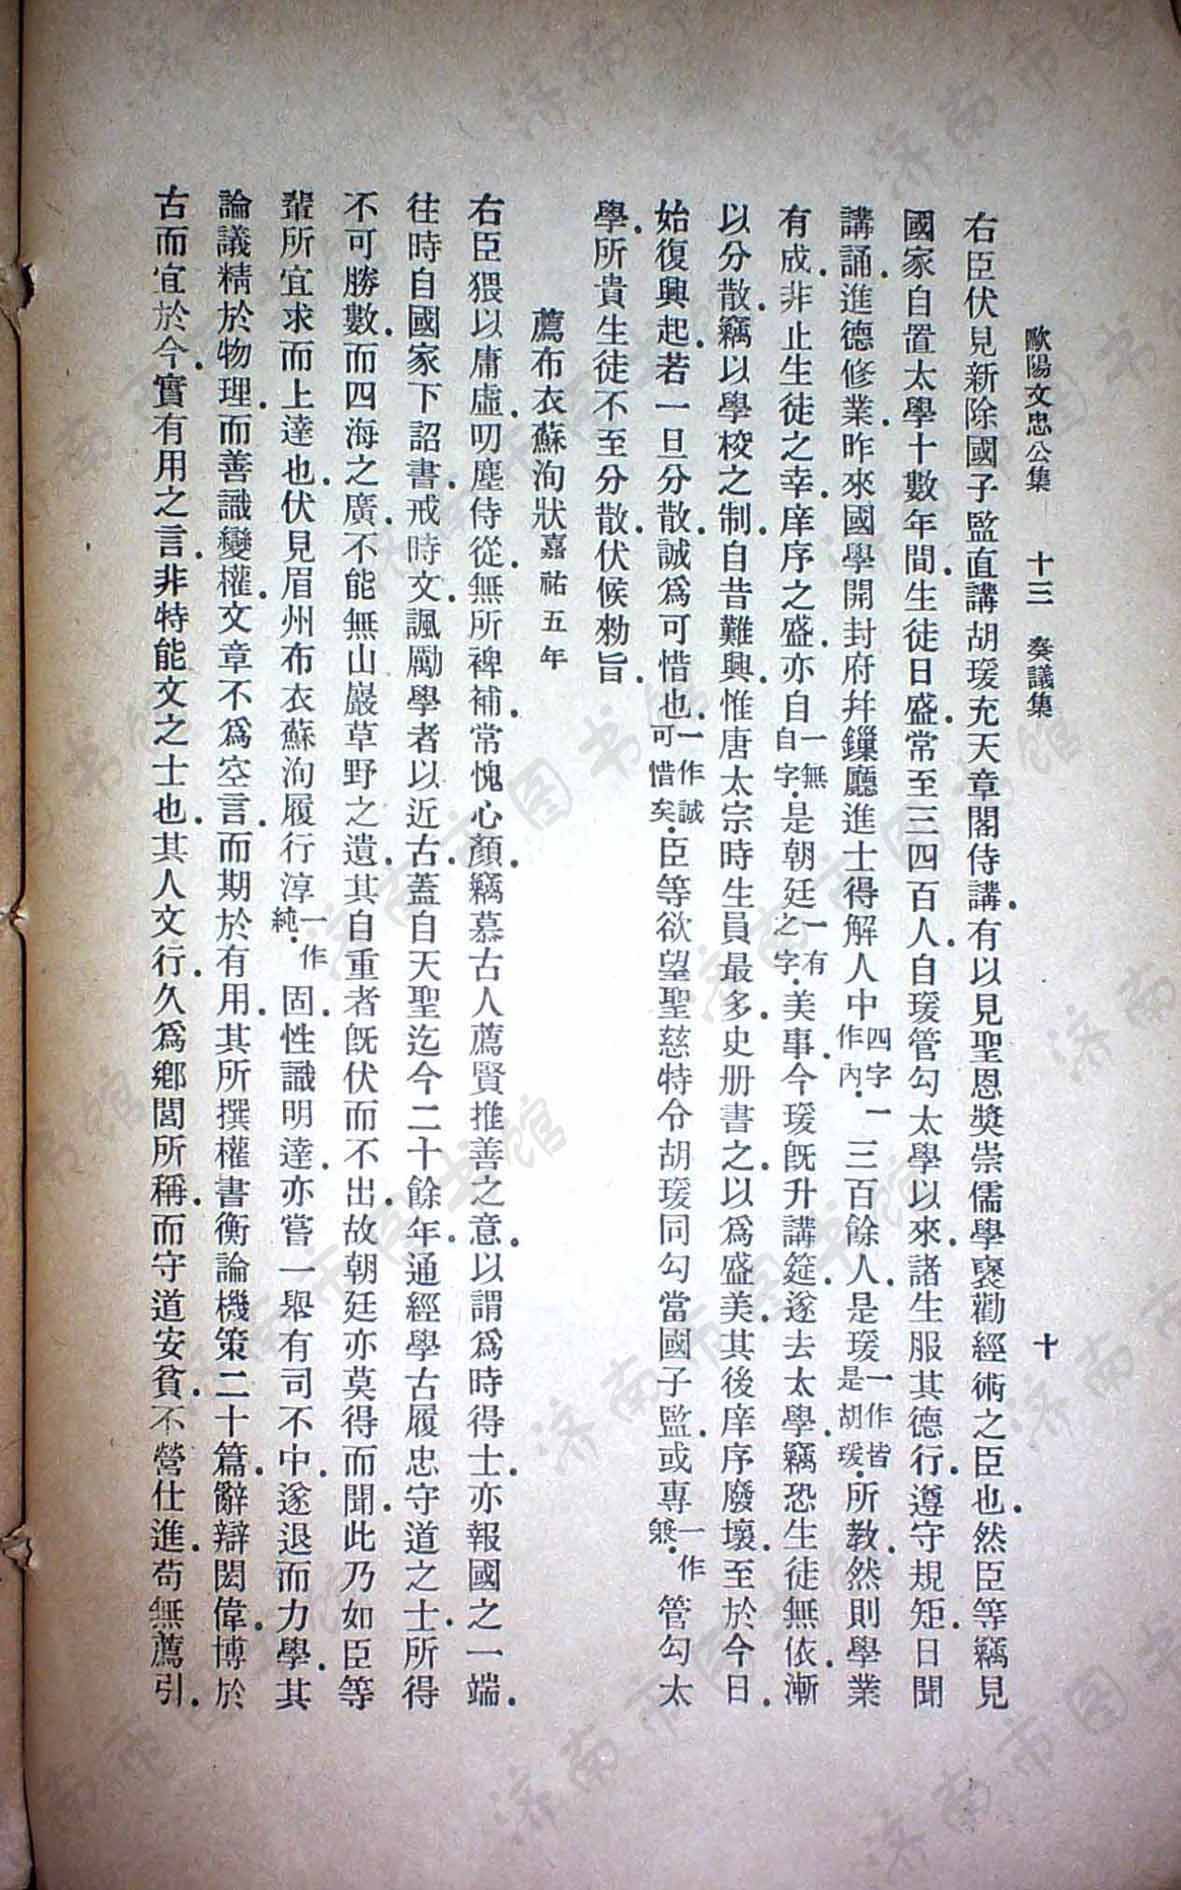 歐陽文忠公集 十三 奏議集 十
右臣伏見新除國子監直講胡瑗充天章閣侍講.有以見聖恩奬崇儒學褒勸經術之臣也.然臣等竊見
國家自置太學十數年間.生徒日盛.常至三四百人.自瑗管勾太學以來.諸生服其德行.遵守規矩.日聞
講誦.進德修業.昨來國學開封府幷鏁廳進士得解人中四字一作內.三百餘人.是瑗一作皆是胡瑗.所教.然則學業
有成.非止生徒之幸.庠序之盛.亦自一無自字.是朝廷一有之字.美事.今瑗旣升講筵.遂去太學.竊恐生徒無依.漸
以分散.竊以學校之制.自昔難興.惟唐太宗時生員最多.史册書之.以爲盛美.其後庠序廢壞.至於今日.
始復興起.若一旦分散.誠爲可惜也.一作誠可惜矣.臣等欲望聖慈特令胡瑗同勾當國子監.或專一作兼.管勾太
學.所貴生徒不至分散.伏候勑旨.
薦布衣蘇洵狀嘉祐五年
右臣猥以庸虛.叨塵侍從.無所裨補.常愧心顏.竊慕古人薦賢推善之意.以謂爲時得士.亦報國之一端.
往時自國家下詔書.戒時文.諷勵學者以近古.蓋自天聖迄今二十餘年.通經學古履忠守道之士.所得
不可勝數.而四海之廣.不能無山巖草野之遺.其自重者旣伏而不出.故朝廷亦莫得而聞.此乃如臣等
輩所宜求而上達也.伏見眉州布衣蘇洵履行淳一作純.固.性識明達.亦嘗一舉有司.不中.遂退而力學.其
論議精於物理.而善識變權.文章不爲空言.而期於有用.其所撰權書衡論機策二十篇.辭辯閎偉.博於
古而宜於今.實有用之言.非特能文之士也.其人文行.久爲鄉閭所稱.而守道安貧.不營仕進.苟無薦引.